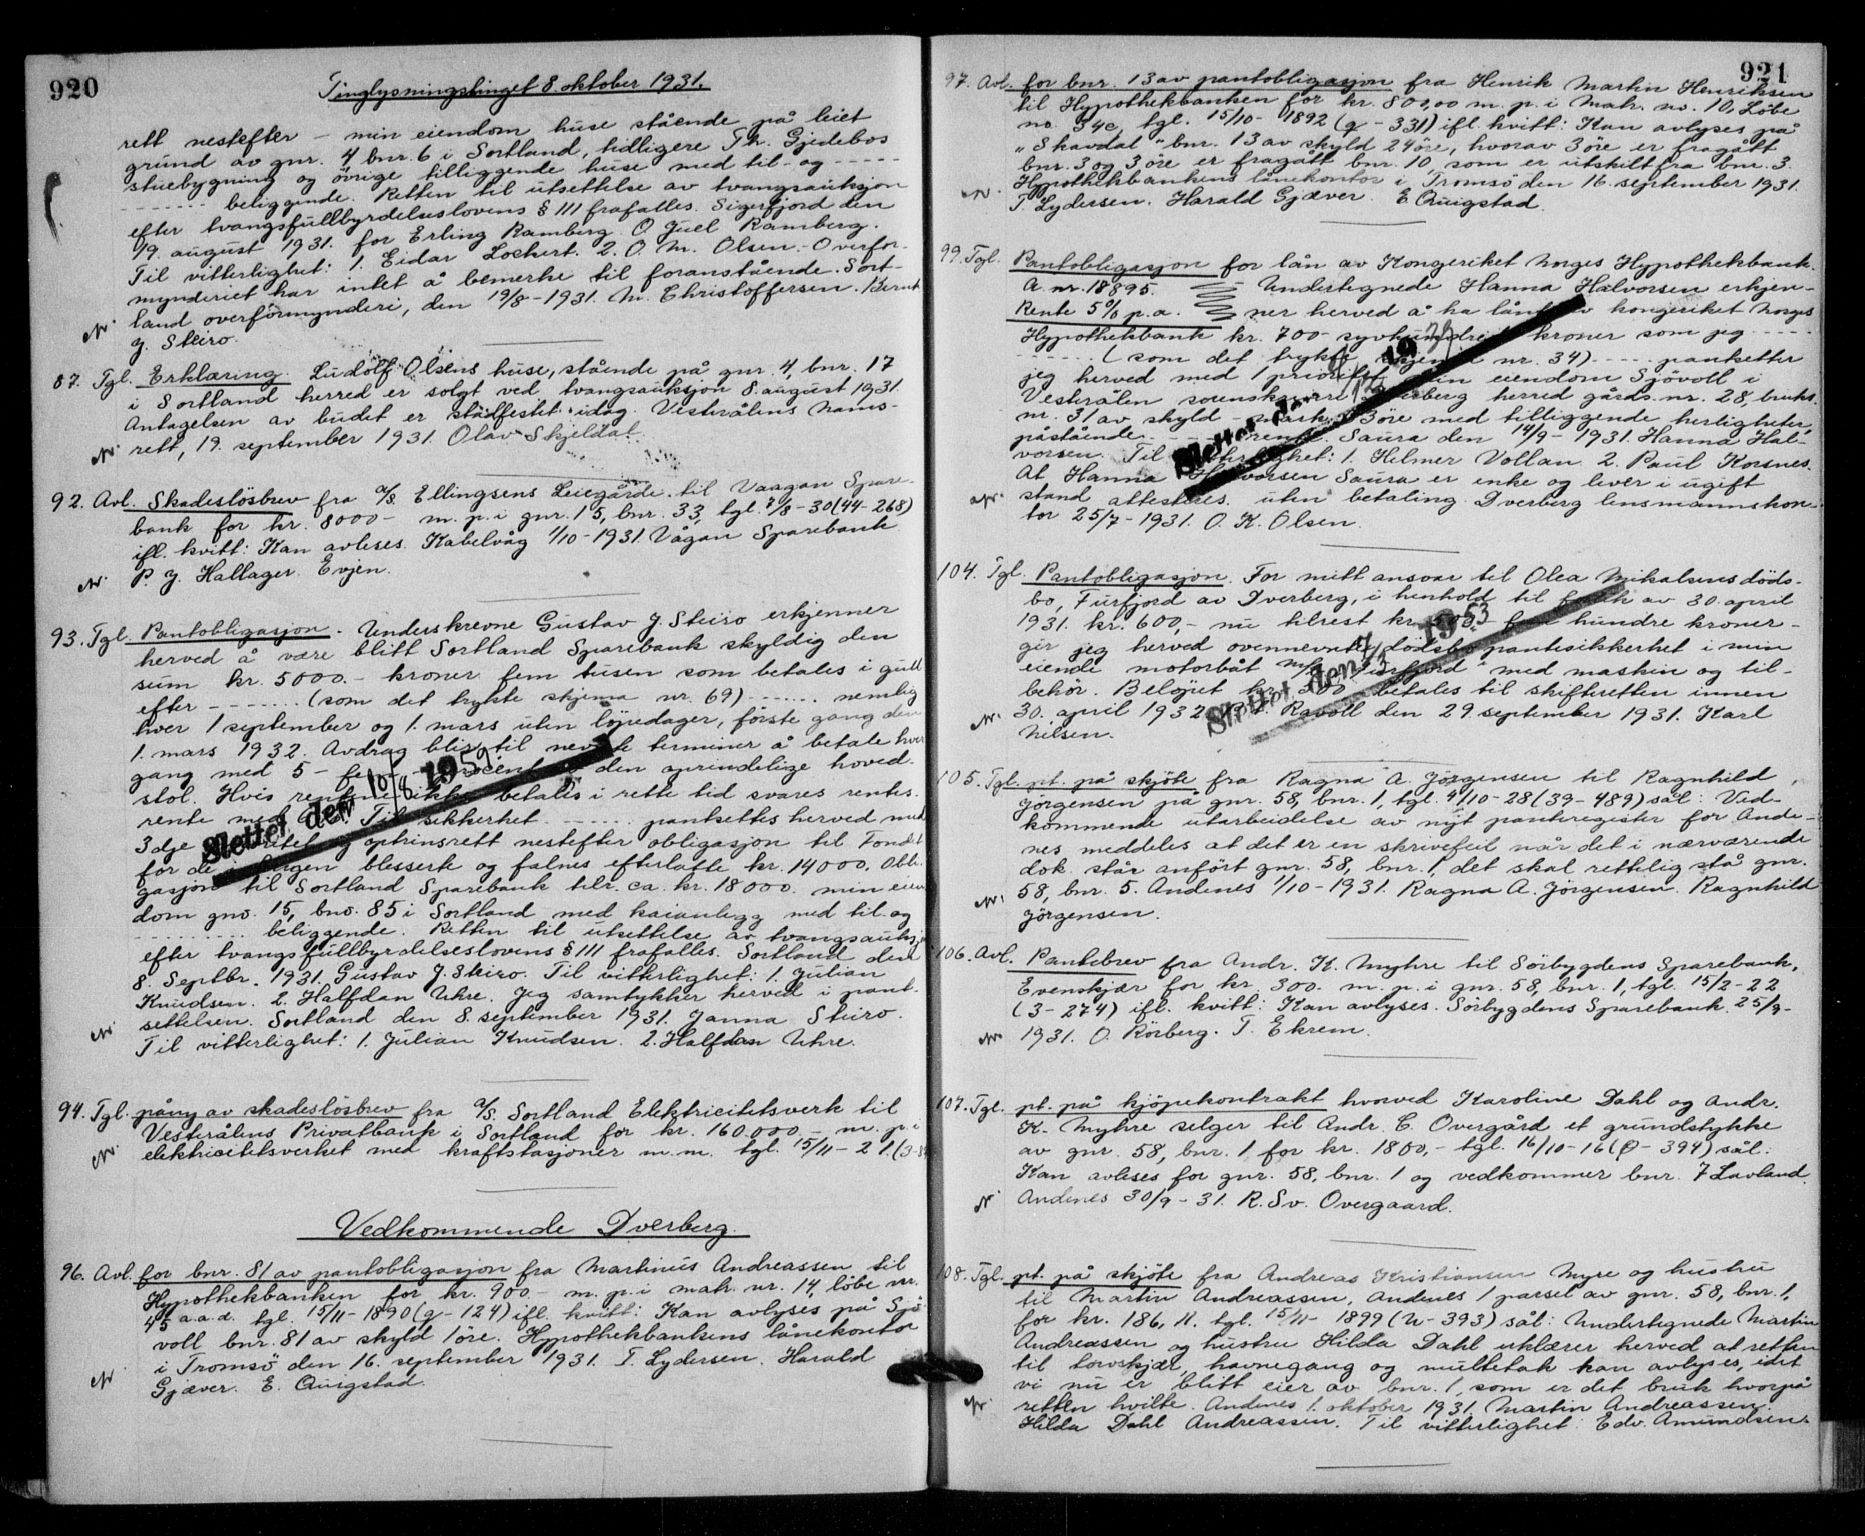 920
Tinglysningstinget 8 oktober 1931.
rett nestefter - min eiendom huse stående på leiet
grund av gnr. 4 bnr. 6 i Sortland, tidligere Th. Gjedebos
stuebygning og övrige tilliggende huse med til- og - - - - -
- - - - - - beliggende. Retten til utsettelse av tvangsauksjon
efter tvangsfullbyrdelseslovens § 111 frafalles. Sigerfjord den
19. august 1931. for Erling Ramberg. O Juel Ramberg.
Til vitterlighet: 1. Eidar Lockert. 2. O. M. Olsen. - Overfor-
mynderiet har intet å bemerke til foranstående. Sort-
land overformynderi, den 19/8 - 1931. M. Christoffersen. Bernt
J. Steiro.
87. Tgl. Erklæring. Ludolf Olsens huse, stående på gnr. 4, bnr. 17
i Sortland herred er solgt ved tvangsauksjon 8. august 1931.
Antagelsen av budet er stadfestet idag. Vesterålens nams-
rett, 19. september 1931. Olav Skjeldal
92. Avl. Skadeslösbrev fra A/S Ellingsens Leiegårde til Vaagan Spare-
bank for kr. 8000 - m. p. i gnr. 15, bnr. 33, tgl. 7/8 - 30 (44 - 268)
ifl. kvitt: Kan avleses. Kabelvåg 1/10 - 1931. Vågan Sparebank
P. J. Hallager. Evjen.
93. Tgl. Pantobligasjon. Underskrevne Gustav J. Steiro erkjenner
herved å være blitt Sortland Sparebank skyldig den
sum kr. 5000. - kroner fem tusen som betales i gull
efter - - - - - - - (som det trykte skjema nr. 69) - - - - - - nemlig
hver 1 september og 1. mars uten löpedager, förste gang den
1. mars 1932. Avdrag blir til nevnte terminer å betale hver
gang med 5 - fem - procent av den oprindelige hoved-
stol. Hvis rentene ikke betales i rette tid svares rentes-
rente med 6%. Til sikkerhet - - - - - - pantsettes herved med
3dje prioritet og oprinsrett nestefter obligasjon til Fondet
for de i krigen blesserte og falnes efterlatte kr. 14000, obli-
gasjon til Sortland Sparebank tilr. ca. kr. 18000. min eien-
dom gno. 15, bno. 85 i Sortland med kaianlegg med til- og
- - - - - - - - - beliggende. Retten til utsettelse av tvangsauksjon
efter tvangsfullbyrdelseslovens § 111 frafalles. Sortland den
8. Septbr. 1931. Gustav J. Steiro. Til vitterlighet: 1. Julian
Knudsen. 2. Halfdan Uhre. Jeg samtykker herved i pant-
settelsen. Sortland den 8. september 1931. Janna Steiro.
Til vitterlighet: 1. Julian Knudsen. 2. Halfdan Uhre.
Slettet den 10/8 1959
94. Tgl. påny av skadeslösbrev fra A/S. Sortland Elektricitetsverk til
Vesterålens Privatbank i Sortland for kr. 160.000 - m. p. i
elektricitetsverket med kraftstasjoner m. m. tgl. 15/11 - 21.
Vedkommende Dverberg.
96. Avl. for bnr. 81 av pantobligasjon fra Martinus Andreassen til
Hypothekbanken for kr. 900. - m. p. i matr. nr. 14, löbe nr.
45 a. a. d. tgl. 15/11 - 1890 (g - 124) ifl. kvitt: Kan avlyses på Sjö-
voll bnr. 81 av skyld 1 öre. Hypothekbankens lånekontor
i Tromsö den 16. september 1931. T. Lydersen. Harald
Gjæver. E. Quigstad.
921
97. Avl. for bnr. 13 av pantobligasjon fra Henrik Martin Henriksen
til Hypothekbanken for kr. 800,00 m. p. i Matr. no. 10, Löbe
no. 34c, tgl. 15/10 - 1892 (g - 331) ifl. kvitt: Kan avlyses på
"Skavdal" bnr. 13 av skyld 24 öre, hvorav 3 öre er fragått
bnr. 3 og 3 öre er fragått bnr. 10 som er utskilt fra bnr. 3.
Hypothekbankens lånekontor i Tromsö den 16. september 1931.
T. Lydersen. Harald Gjæver. E Quigstad.
99. Tgl. Pantobligasjon for lån av Kongeriket Norges Hypothekbank.
A. nr. 18895. Undertegnede Hanna Halvorsen erkjen-
Rente 5% p. a. ner herved å ha lånt av kongeriket Norges
Hypothekbank kr. 700 - syvhundrede kroner som jeg - - - -
- - - - - - (som det trykte skjema nr. 34) - - - - pantsetter
jeg herved med 1 prioritet min eiendom Sjövoll i
Vesterålen sorenskriveri Dverberg herred gårds nr. 28, bruks
nr. 31 av skyld - mark 3 öre med tilliggende herligheter,
påstående - - - - - rente. Saura den 14/9 - 1931. Hanna Hal-
vorsen. Til vitterlighet: 1. Helmer Vollan. 2. Paul Korsnes.
At Hanna Halvorsen Saura er enke og lever i ugift
stand attesteres uten betaling. Dverberg lensmannskon-
tor 25/7 - 1931. O. K. Olsen.
Slettet den 19
104. Tgl. Pantobligasjon. For mitt ansvar til Olea Mikalsens döds-
bo, Furfjord av Dverberg, i henhold til av 30. april
1931. kr. 600, - nu tilrest kr. 500. fem hundre kroner -
gir jeg herved ovennevnte dödsbo pantesikkerhet i min
eiende motorbåt m/k "Furfjord" med maskin og til-
behör. Belöpet kr. 500 betales til skifteretten innen
30. april 1932. Ravoll den 29. september 1931. Karl
Nilsen.
Slettet den 1953
105. Tgl. pt. på skjöte fra Ragna A. Jörgensen til Ragnhild
Jörgensen på gnr. 58, bnr. 1, tgl. 4/10 - 28 (39 - 489) sål: Ved-
kommende utarbeidelse av nyt panteregister for Ande-
nes meddeles at det er en skrivefeil når det i nærværende
dok står anfört gnr. 58, bnr. 1, det skal rettelig stå gnr.
58, bnr. 5. Andenes 1/10 - 1931. Ragna A. Jörgensen. Ragnhild
Jörgensen.
106. Avl. Pantebrev fra Andr. K. Myhre til Sörbygdens Sparebank,
Evenskjær for kr. 300. - m. p. i gnr. 58, bnr. 1, tgl. 15/2 - 22
(3 - 274) ifl. kvitt: Kan avlyses. Sörbygdens Sparebank. 25/9 -
1931. O. Rörberg. T. Ekrem.
107. Tgl. pt. på kjöpekontrakt hvorved Karoline Dahl og Andr.
K. Myhre selger til Andr. C. Overgård et grundstykke
av gnr. 58, bnr. 1 for kr. 1800, - tgl. 16/10 - 16 (P - 394) sål:
Kan avleses for gnr. 58, bnr. 1 og vedkommer bnr. 7 Lavland.
Andenes 30/9 - 31. R. Sv. Overgaard.
108. Tgl. pt. på skjöte fra Andreas Kristiansen Myre og hustru
til Martin Andreassen, Andenes 1 parsel av gnr. 58, bnr. 1,
for kr. 186, 11. tgl. 15/11 - 1899 (U - 393) sål: Undertegnede Martin
Andreassen og hustru Hilda Dahl erklærer herved at retten
til torvskjær, havnegang og multetak kan avlyses, idet
vi nu er blitt eier av bnr. 1, som er det bruk hvorpå
retten hvilte. Andenes 1. oktober 1931. Martin Andreassen.
Hilda Dahl Andreassen. Til vitterlighet: Edv. Amundsen.